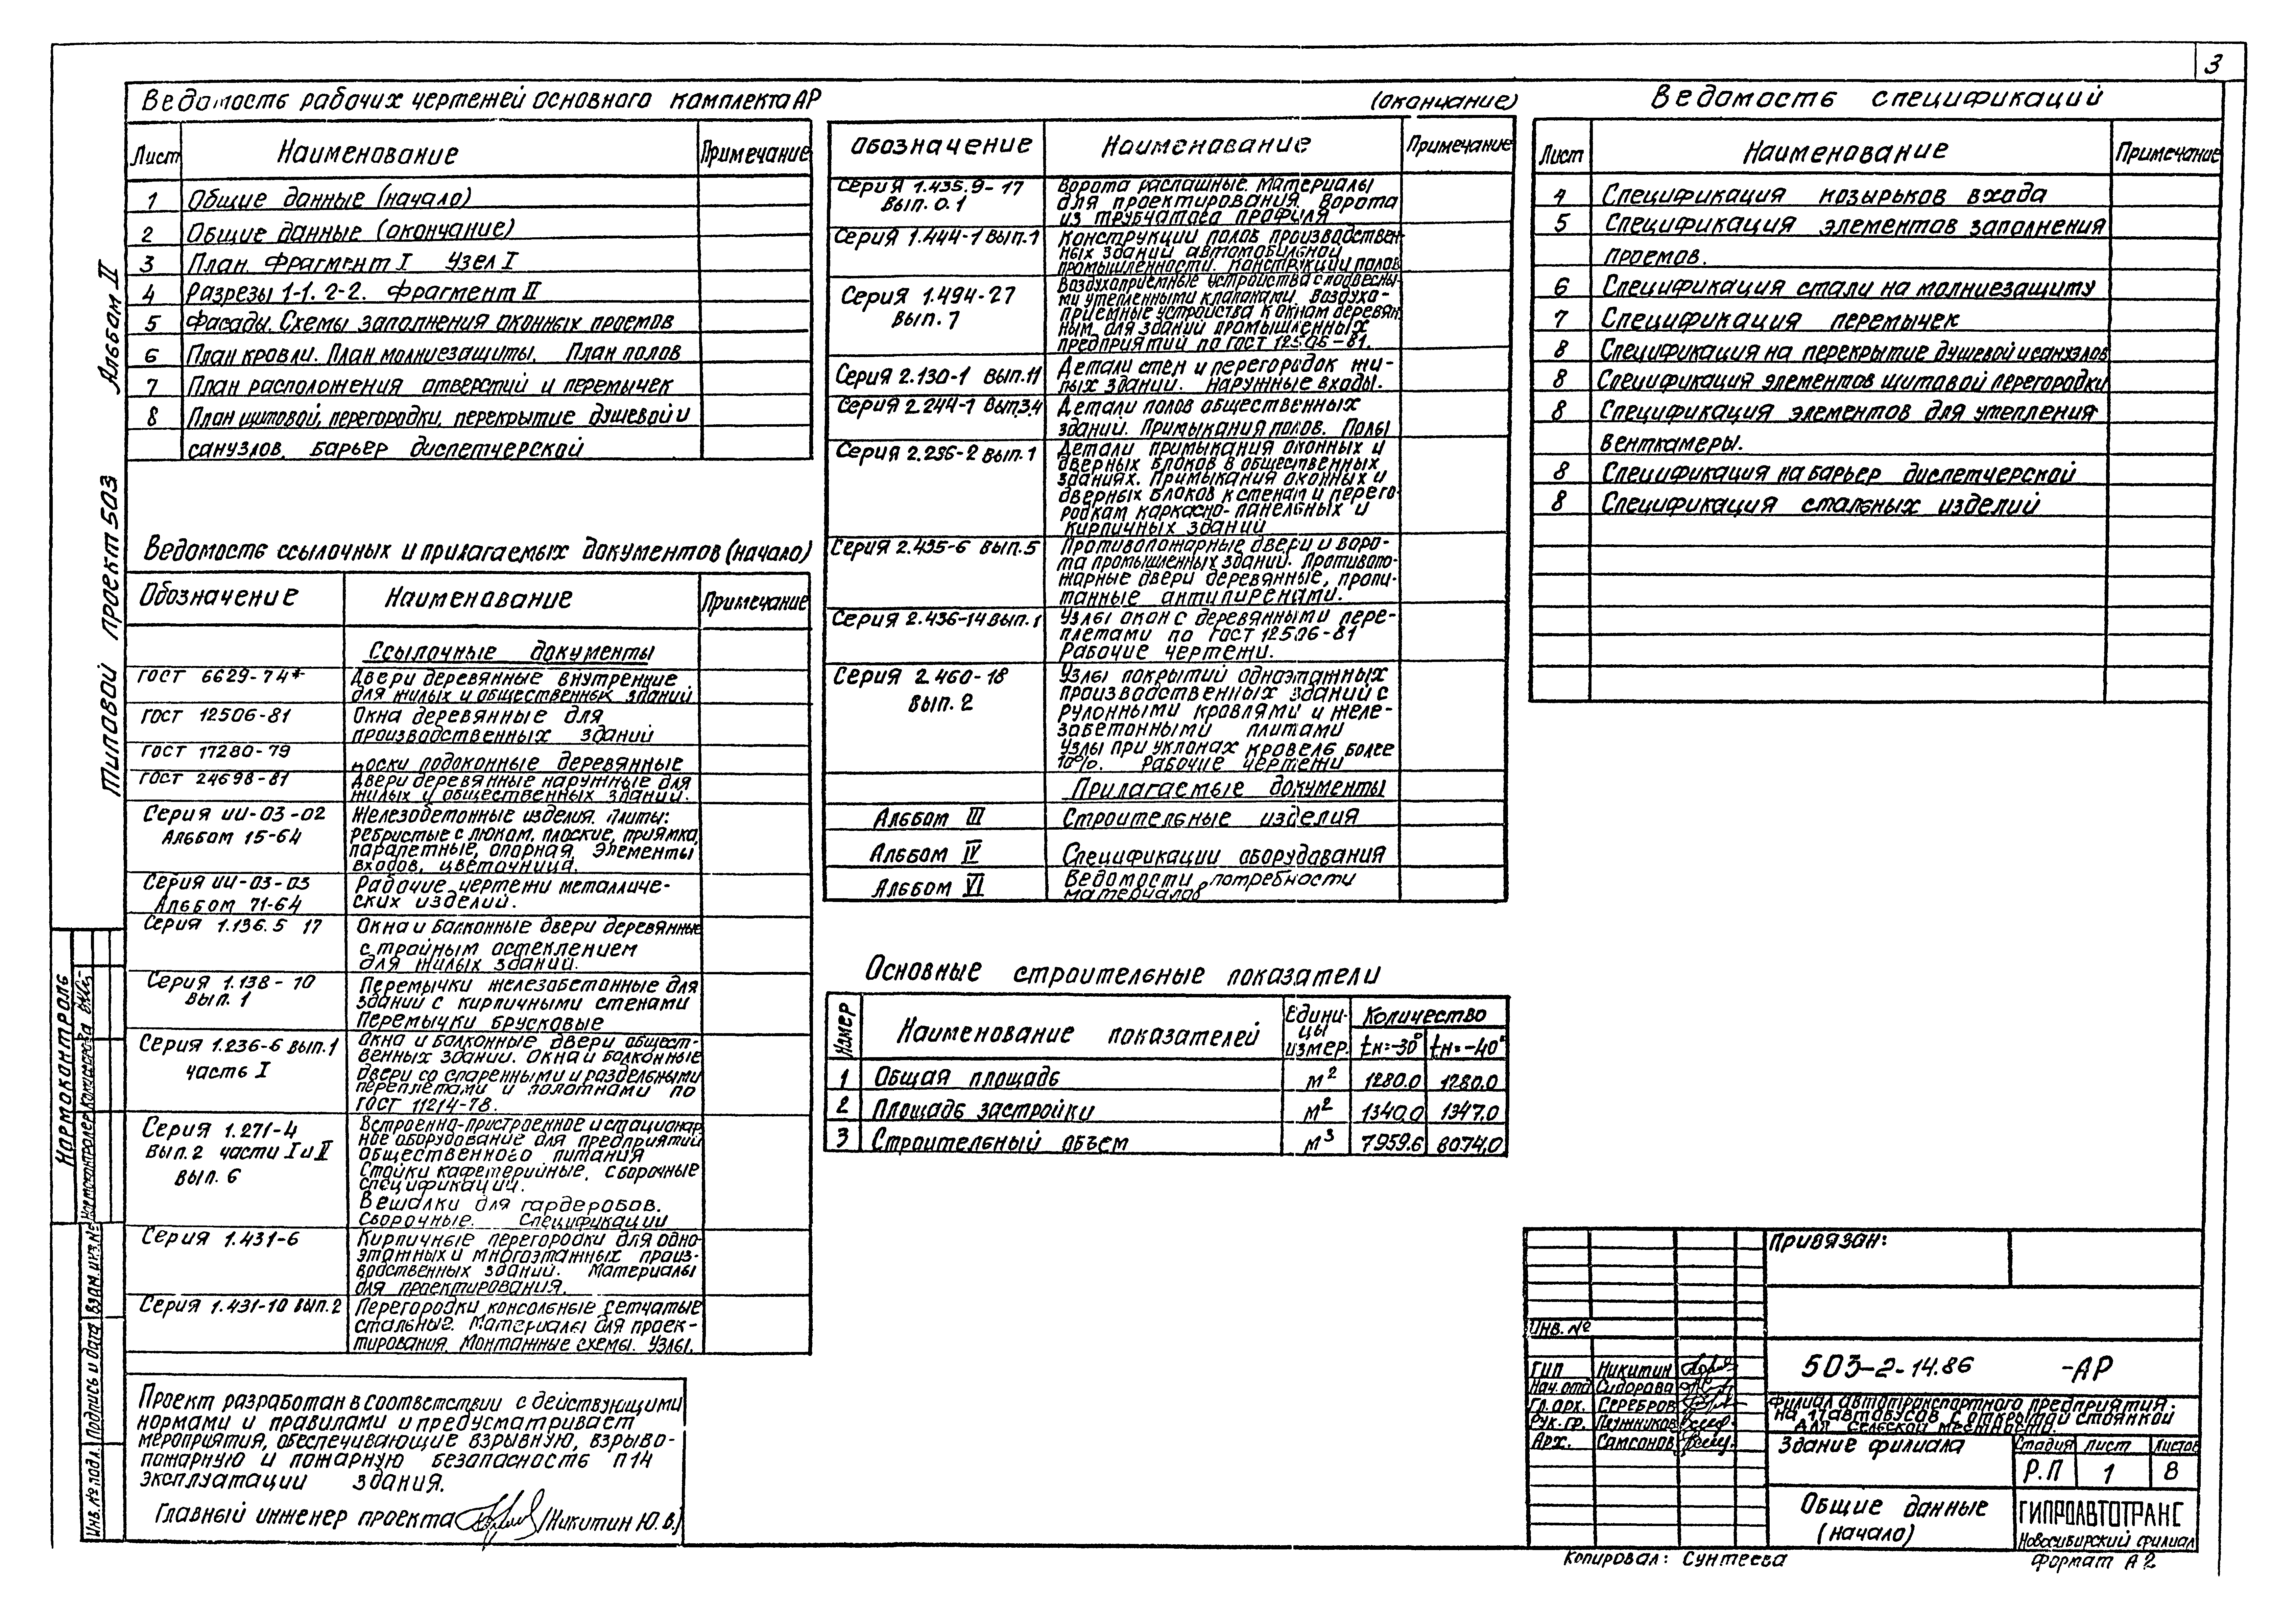 3
Ведомость рабочих чертежей основного комплекта АР
Лист Наименование Примечание
1 Общие данные (начало)
2 Общие данные (окончание)
3 План. Фрагмент I Узел I
4 Разрезы 1-1. 2-2. Фрагмент II
5 Фасады. Схемы заполнения оконных проемов
6 План кровли. План молниезащиты. План полов
7 План расположения отверстий и перемычек
8 План щитовой, перегородки, перекрытие душевой и
санузлов. барьер диспетчерской
Ведомость ссылочных и прилагаемых документов (начало)
Обозначение Наименование Примечание
Ссылочные документы
ГОСТ 6629-74* Двери деревянные внутренние
для жилых и общественных зданий
ГОСТ 12506-81 Окна деревянные для
производственных зданий
ГОСТ 17280-79
Доски подоконные деревянные
ГОСТ 24698-81 Двери деревянные наружные для
жилых и общественных зданий.
Серия ИИ-03-02 Железобетонные изделия. Плиты:
Альбом 15-64 ребристые с люком, плоские, приямка,
парапетные, опорная. Элементы
входов, цветочница.
Серия ИИ-03-03 Рабочие чертежи металличе-
Альбом 71-64 ских изделий.
Серия 1.136.5 17 Окна и балконные двери деревянные
с тройным остеклением
для жилых зданий.
Серия 1.138-10 Перемычки железобетонные для
вып. 1 зданий с кирпичными стенами
Перемычки брусковые
Серия 1.236-6 вып.1 Окна и балконные двери общест-
часть I венных зданий. Окна и балконные
двери со спаренными и раздельными
переплетами и полотнами по
ГОСТ 11214-78.
Серия 1.271-4 Встроенно-пристроенное и стационар
вып.2 части I и II ное оборудование для предприятий
вып. 6 общественного питания
Стойки кафетерийные, сборочные
спецификации.
Вешалки для гардеробов.
Сборочные. Спецификации
Серия 1.431-6 Кирпичные перегородки для одно-
этажных и многоэтажных произ-
водственных зданий. Материалы
для проектирования.
Серия 1.431-10 вып.2 Перегородки консольные сетчатые
стальные. Материалы для проек-
тирования. Монтажные схемы. Узлы.
Проект разработан в соответствии с действующими
нормами и правилами и предусматривает
мероприятия, обеспечивающие взрывную, взрыво-
пожарную и пожарную безопасность п14
эксплуатации здания.
Главный инженер проекта /Никитин Ю.В./
(окончание)
Обозначение Наименование Примечание
Серия 1.435.9-17 Ворота распашные. Материалы
вып. 0.1 для проектирования. Ворота
из трубчатого профиля
Серия 1.444-1 вып.1 Конструкции полов производствен-
ных зданий автомобильной
промышленности. Конструкции полов
Серия 1.494-27 Воздухоприемные устройства с подвесны-
вып. 7 ми утепленными клапанами. Воздухо-
приемные устройства к окнам деревян
ным для зданий промышленных
предприятий по ГОСТ 12506-81.
Серия 2.130-1 вып.11 Детали стен и перегородок жи-
лых зданий. Наружные входы.
Серия 2.244-1 вып.3.4 Детали полов общественных
зданий. Примыкания полов. Полы
Серия 2.236-2 вып.1 Детали примыкания оконных и
дверных блоков в общественных
зданиях. Примыкания оконных и
дверных блоков к стенам и перего-
родкам каркасно-панельных и
кирпичных зданий
Серия 2.435-6 вып.5 Противопожарные двери и воро-
та промышленных зданий. Противопо-
жарные двери деревянные, пропи-
танные антипиренами.
Серия 2.436-14 вып.1 Узлы окон с деревянными пере-
плетами по ГОСТ 12506-81
Рабочие чертежи.
Серия 2.460-18 Узлы покрытий одноэтажных
вып. 2 производственных зданий с
рулонными кровлями и желе-
забетонными плитами
Узлы при уклонах кровель более
10%. Рабочие чертежи
Прилагаемые документы
Альбом III Строительные изделия
Альбом IV Спецификации оборудования
Альбом VI Ведомости потребности
материалов
Основные строительные показатели
Номер Наименование показателей Едини-цы измер. Количество
tн=-30° tн=-40°
1 Общая площадь м² 1280.0 1280.0
2 Площадь застройки м² 1340.0 1347.0
3 Строительный объем м³ 7959.6 8074,0
Ведомость спецификаций
Лист Наименование Примечание
4 Спецификация козырьков входа
5 Спецификация элементов заполнения
проемов.
6 Спецификация стали на молниезащиту
7 Спецификация перемычек
8 Спецификация на перекрытие душевой и санузлов
8 Спецификация элементов щитовой перегородки
8 Спецификация элементов для утепления
венткамеры.
8 Спецификация на барьер диспетчерской
8 Спецификация стальных изделий
Привязан:
Инв. №
ГИП Никитин
Нач. отд Сидорова
Гл. арх. Серебров
Рук. гр. Паужников
Арх. Самсонов
503-2-14.86 -АР
Филиал автотранспортного предприятия
на 17 автобусов с открытой стоянкой
для сельской местности.
Здание филиала
Стадия Лист Листов
Р.П 1 8
Общие данные
(начало)
ГИПРОАВТОТРАНС
Новосибирский филиал
Копировал: Сунтеева
Формат А2
Типовой проект 503 Альбом II
Нормоконтроль
Нормоконтролер
Инв. № подл. Подпись и дата Взам. инв. №